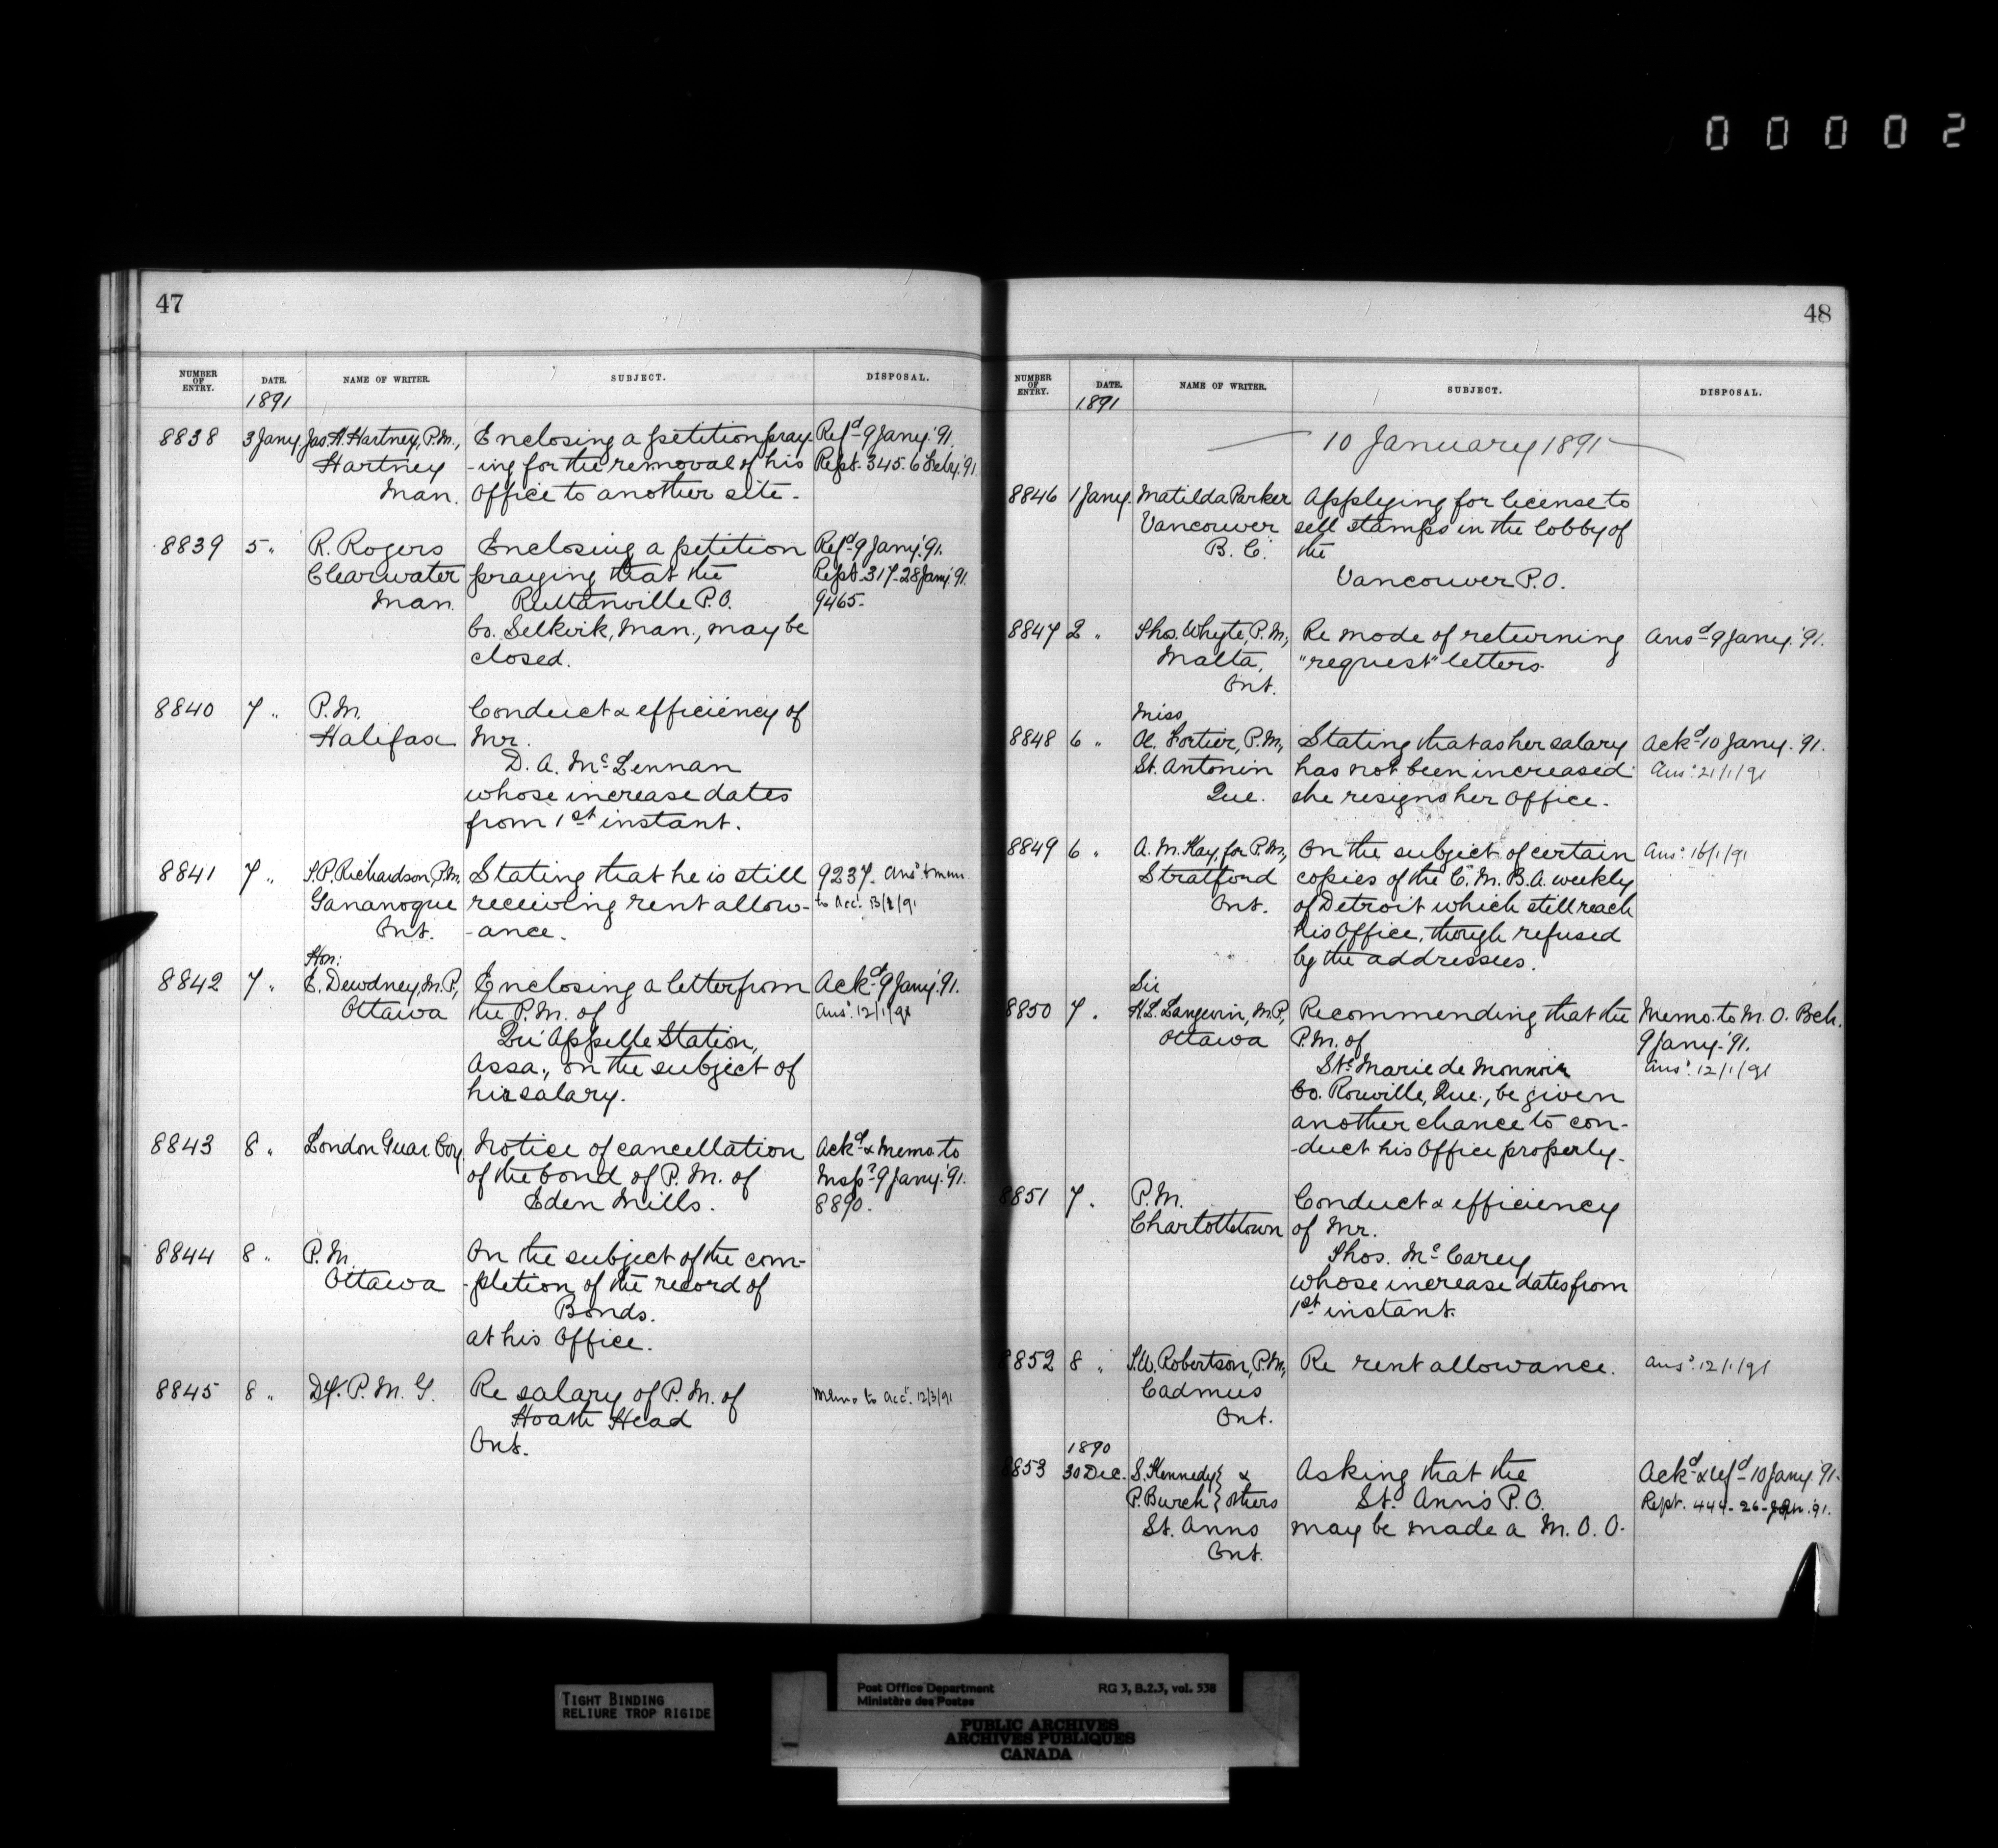 00002
47
NUMBER OF ENTRY. DATE. NAME OF WRITER. SUBJECT. DISPOSAL.
1891
8838 3 Jany. Jas. H. Hartney, P.M., Enclosing a petition pray- Refd 9 Jany. '91.
Hartney -ing for the removal of his Rept. 345. 6 Feby. '91.
Man. Office to another site.
8839 5 " R. Rogers Enclosing a petition Refd 9 Jany. '91.
Clearwater praying that the Rept. 317-28 Jany. '91.
Man. Ruttanville P.O. 9465.
Co. Selkirk, Man., may be
closed.
8840 7 " P.M. Conduct & efficiency of
Halifax Mr.
D. A. McLennan
whose increase dates
from 1st instant.
8841 7 " S.P. Richardson, P.M. Stating that he is still 9237. Ansd & mem.
Gananoque receiving rent allow- to Acct.
Ont. -ance.
Hon:
8842 7 " E. Dewdney, M.P., Enclosing a letter from Ackd 9 Jany. '91.
Ottawa the P.M. of Ansd. 12/1/91
Qu'Appelle Station,
Assa., on the subject of
his salary.
8843 8 " London Guar. Coy. Notice of cancellation Ackd & Memo. to
of the bond of P.M. of Inspr. 9 Jany. '91.
Eden Mills. 8890.
8844 8 " P.M. On the subject of the com-
Ottawa -pletion of the record of
Bonds.
at his Office.
8845 8 " Dy. P.M.G. Re salary of P.M. of Memo to Acct. 12/3/91
Hoath Head
Ont.
48
NUMBER OF ENTRY. DATE. NAME OF WRITER. SUBJECT. DISPOSAL.
1891
10 January 1891
8846 1 Jany. Matilda Parker Applying for license to
Vancouver sell stamps in the lobby of
B. C. the
Vancouver P.O.
8847 2 " Thos. Whyte, P.M., Re mode of returning Ansd 9 Jany. '91.
Malta, "request" letters.
Ont.
Miss
8848 6 " A. Fortier, P.M., Stating that as her salary Ackd 10 Jany. '91.
St. Antonin has not been increased Ansd. 21/1/91
Que. she resigns her Office.
8849 6 " A. M. Kay, for P.M., On the subject of certain Ansd. 16/1/91
Stratford copies of the C. M. B. A. weekly
Ont. of Detroit which still reach
his Office, though refused
by the addressees.
Sir
8850 7 " H. L. Langevin, M.P., Recommending that the Memo. to M. O. Bch.
Ottawa P.M. of 9 Jany. '91.
Ste. Marie de Monnoir Ansd. 12/1/91
Co. Rouville, Que., be given
another chance to con-
-duct his Office properly.
8851 7 " P.M. Conduct & efficiency
Charlottetown of Mr.
Thos. McCarey
whose increase dates from
1st instant.
8852 8 " S.W. Robertson, P.M., Re rent allowance. Ansd. 12/1/91
Cadmus
Ont.
1890
8853 30 Dec. S. Kennedy } & Asking that the Ackd & refd 10 Jany. '91.
P. Burch } others St. Ann's P.O. Rept. 444-26- '91.
St. Anns may be made a M. O. O.
Ont.
TIGHT BINDING
RELIURE TROP RIGIDE
Post Office Department RG 3, B.2.3, vol. 538
Ministère des Postes
PUBLIC ARCHIVES
ARCHIVES PUBLIQUES
CANADA